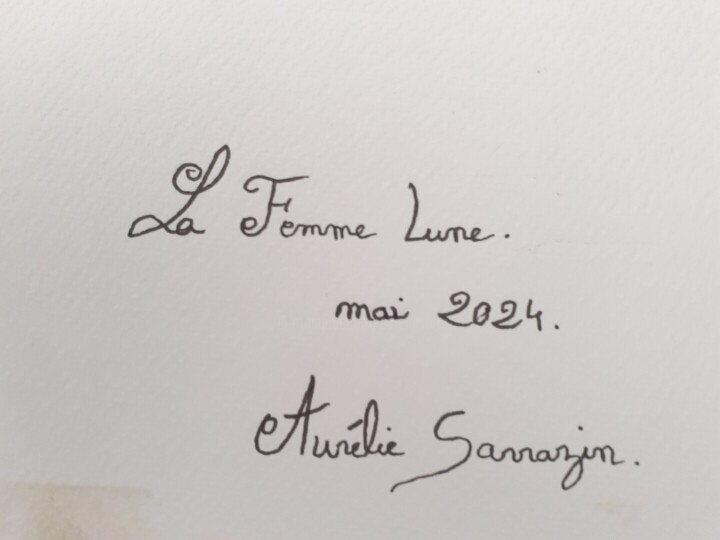 La Femme Lune.
mai 2024.
Aurélie Sarrazin.